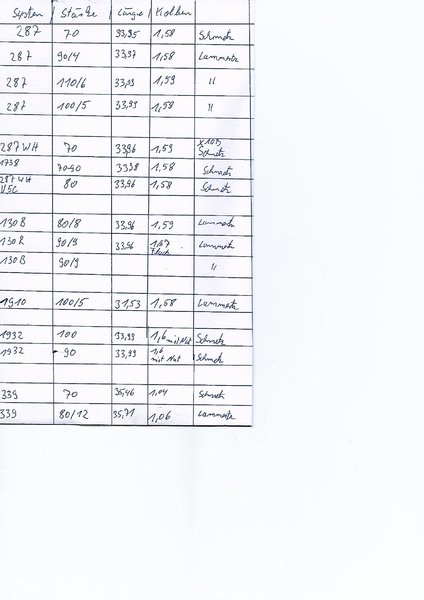 System Stärke Länge Kolben
287 70 33,95 1,58 Schmetz
287 90/4 33,97 1,58 Lammertz
287 110/6 33,99 1,59 "
287 100/5 33,99 1,58 "
287 WH 70 33,96 1,59 Schmetz
1738 70-90 33,98 1,58 Schmetz
287 WH 80 33,96 1,58 Schmetz
130 B 80/8 33,96 1,59 Lammertz
130 R 90/9 33,96 Lammertz
130 B 90/9 "
1910 100/5 31,53 1,58 Lammertz
1932 100 33,99 1,6 mit Nut Schmetz
1932 90 33,99 1,6 mit Nut Schmetz
339 70 35,46 1,04 Schmetz
339 80/12 35,71 1,06 Lammertz